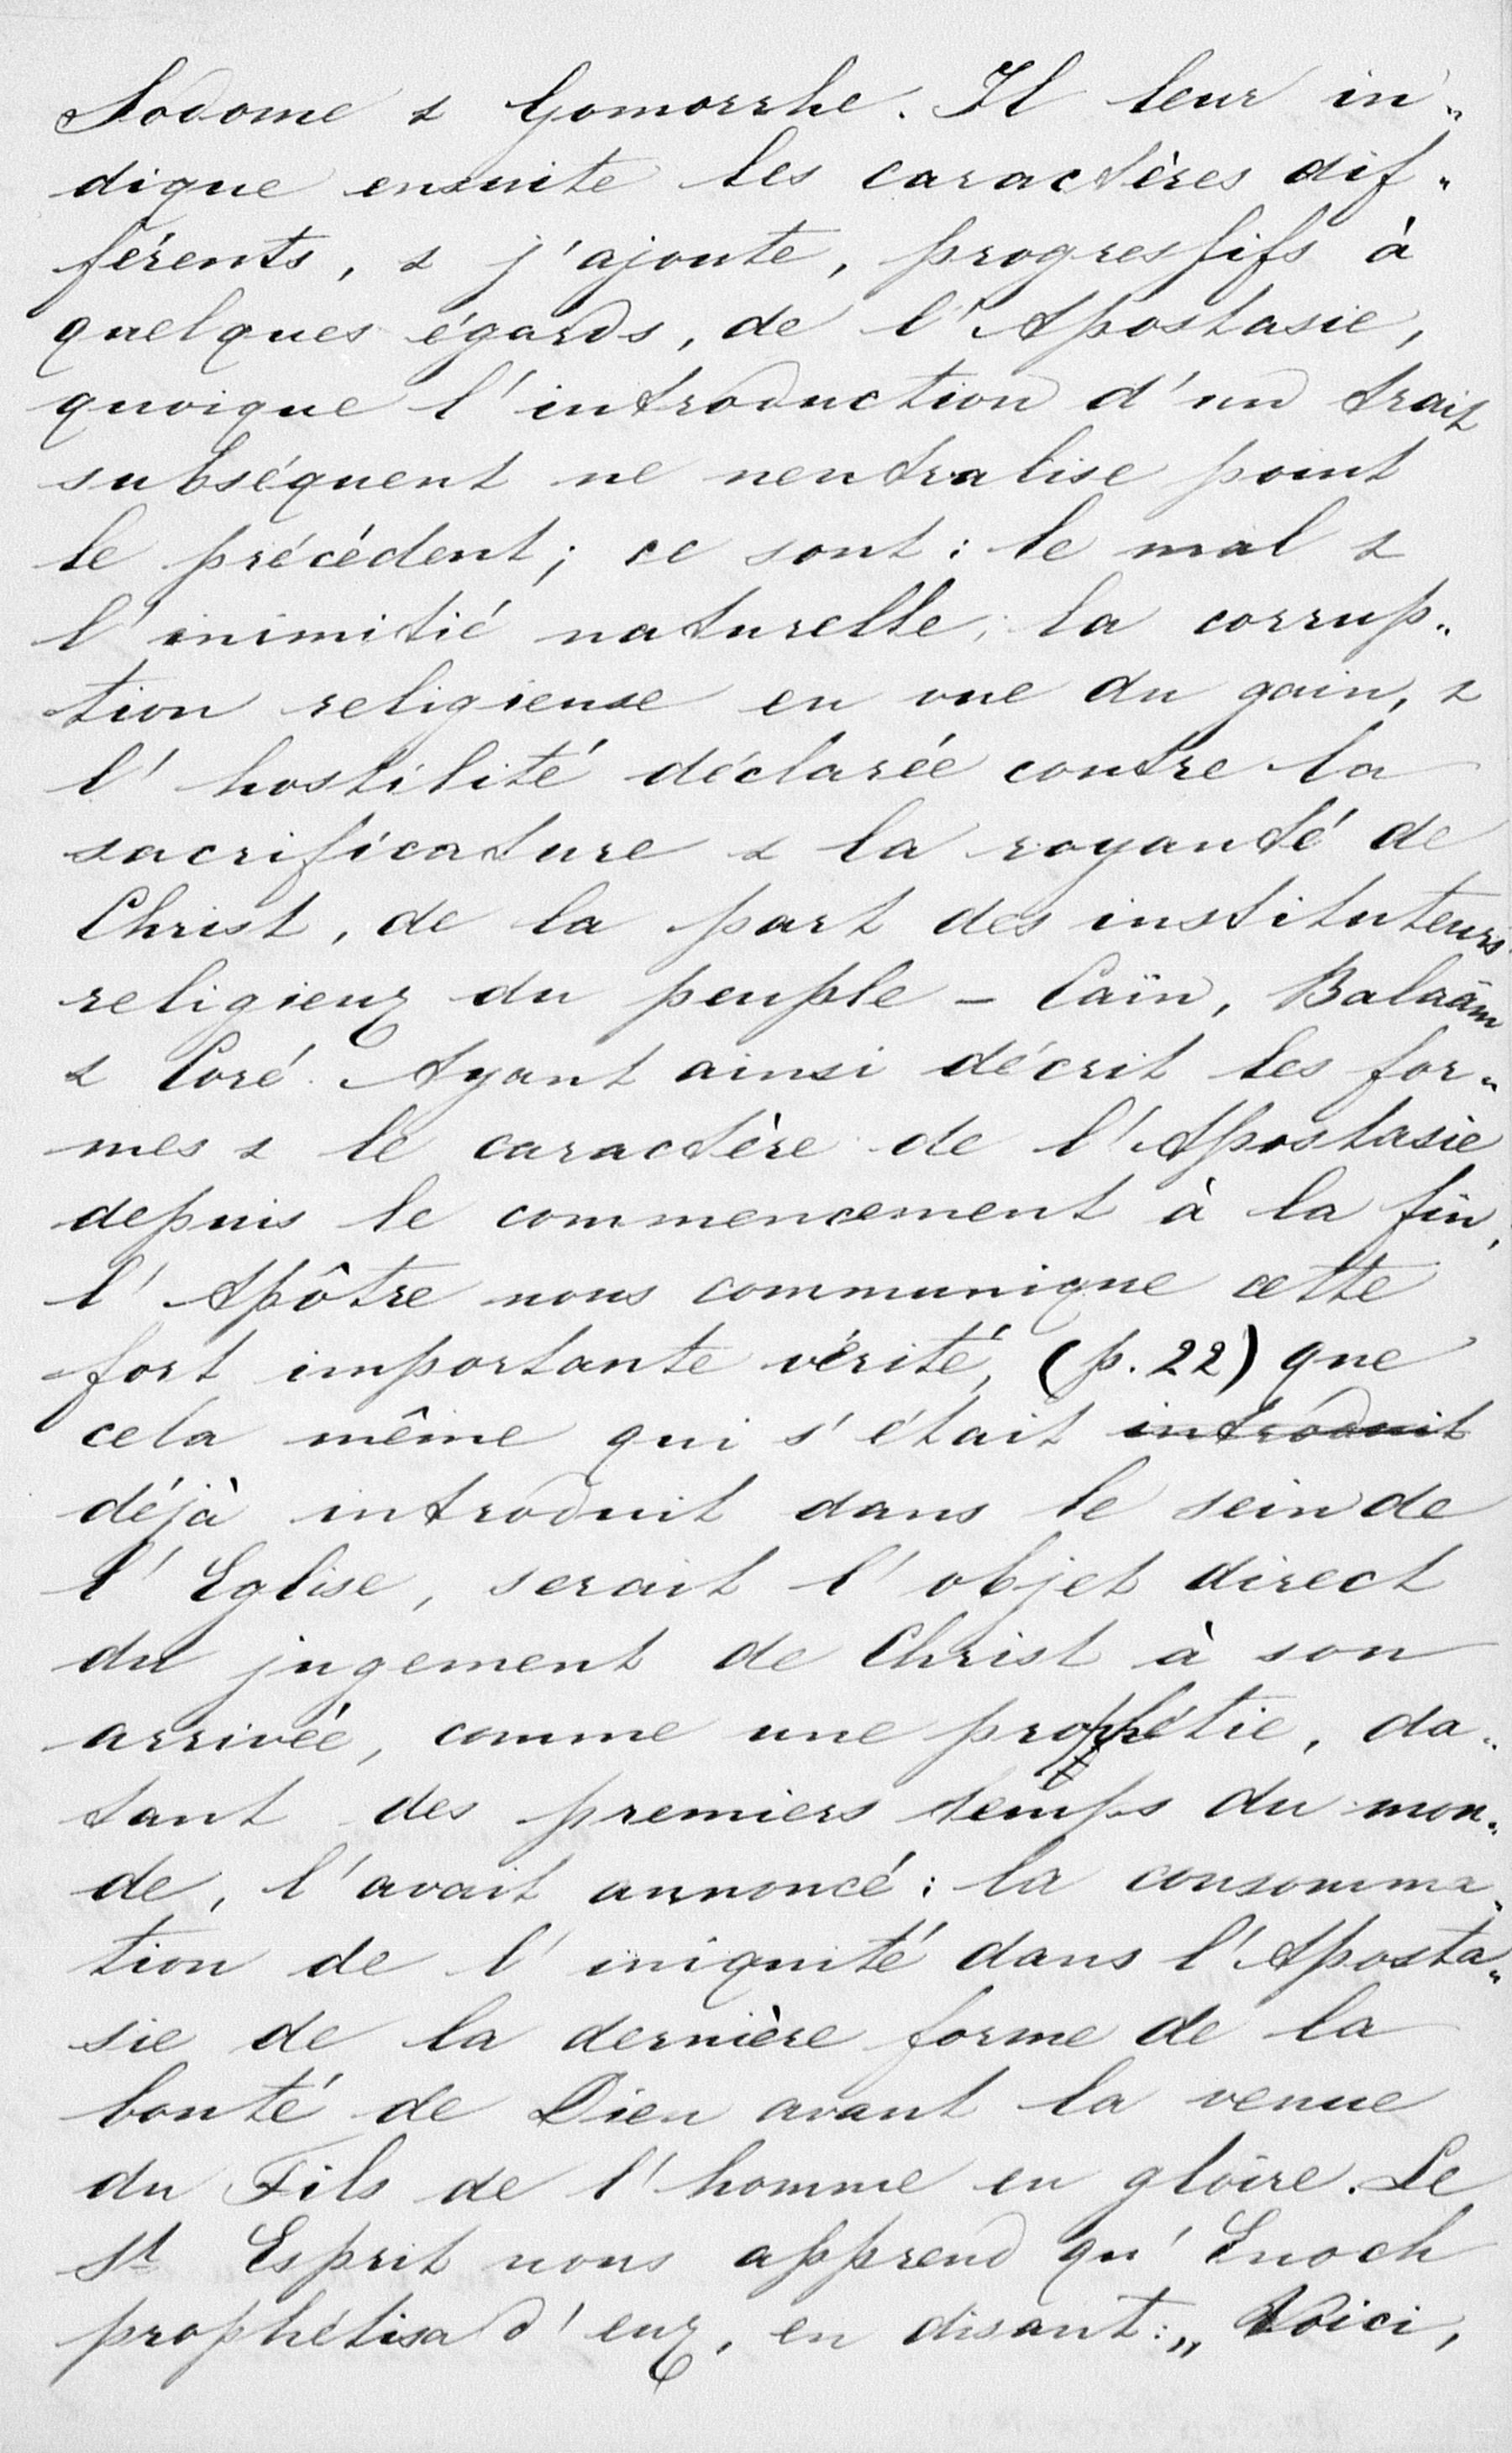 Sodome & Gomorrhe. Il leur in„
dique ensuite les caractères dif„
férents, & j'ajoute, progressifs à
quelques égards, de l'Apostasie,
quoique l'introduction d'un trait
subséquent ne neutralise point
le précédent; ce sont: le mal &
l'inimitié naturelle; la corrup„
tion religieuse en vue du gain, &
l'hostilité déclarée contre la
sacrificature & la royauté de
Christ, de la part des instituteurs
religieux du peuple – Caïn, Balaäm
& Coré. Ayant ainsi décrit les for„
mes & le caractère de l'Apostasie
depuis le commencement à la fin,
l'Apôtre nous communique cette
fort importante vérité, (p. 22) que
cela même qui s'était introduit
déjà introduit dans le sein de
l'Eglise, serait l'objet direct
du jugement de Christ à son
arrivée, comme une prophétie, da„
tant des premiers temps du mon„
de, l'avait annoncé: la consomma„
tion de l'iniquité dans l'Aposta„
sie de la dernière forme de la
bonté de Dieu avant la venue
du Fils de l'homme en gloire. Le
St Esprit nous apprend qu'Enoch
prophétisa d'eux, en disant: „Voici,